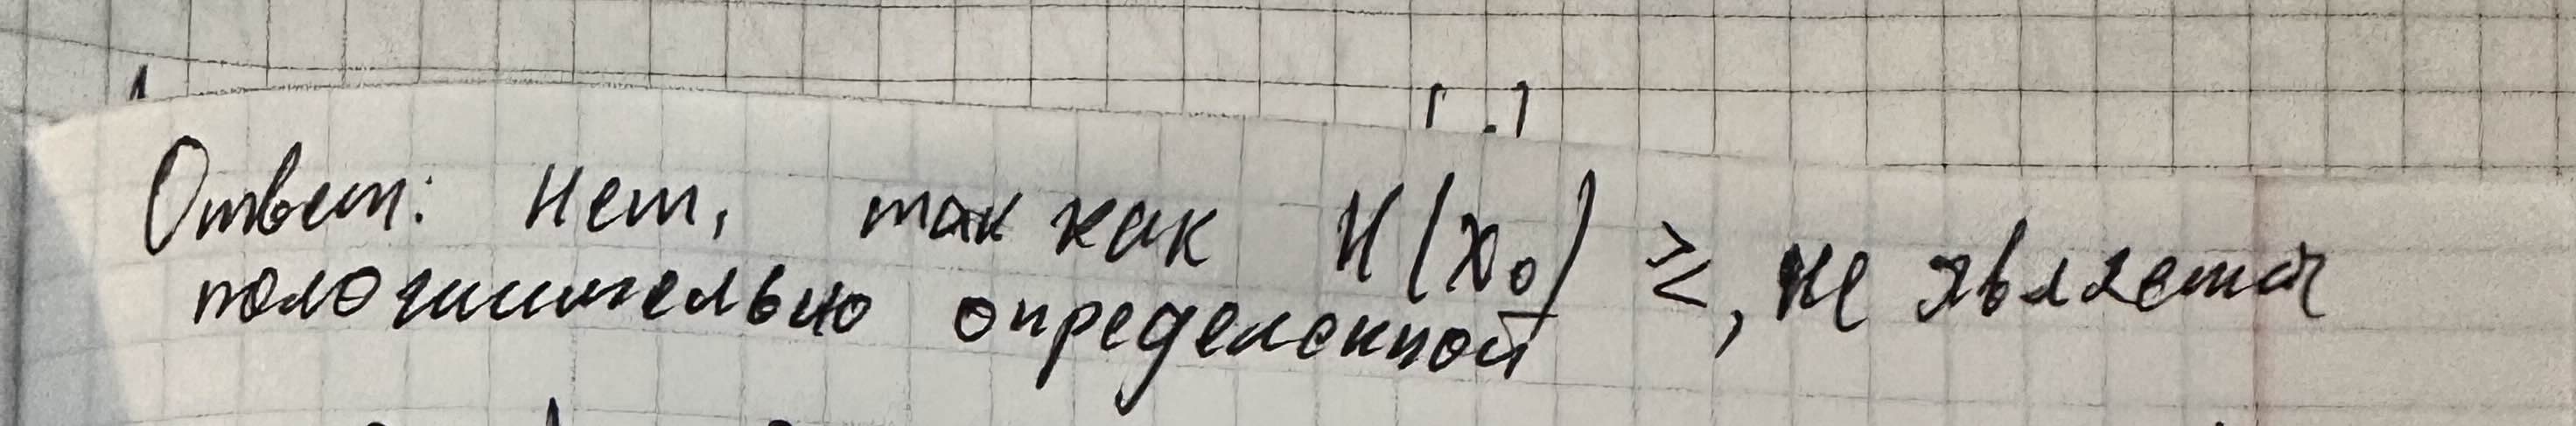 Ответ: Нет, так как H(x₀) ≥, не является
положительно определенной